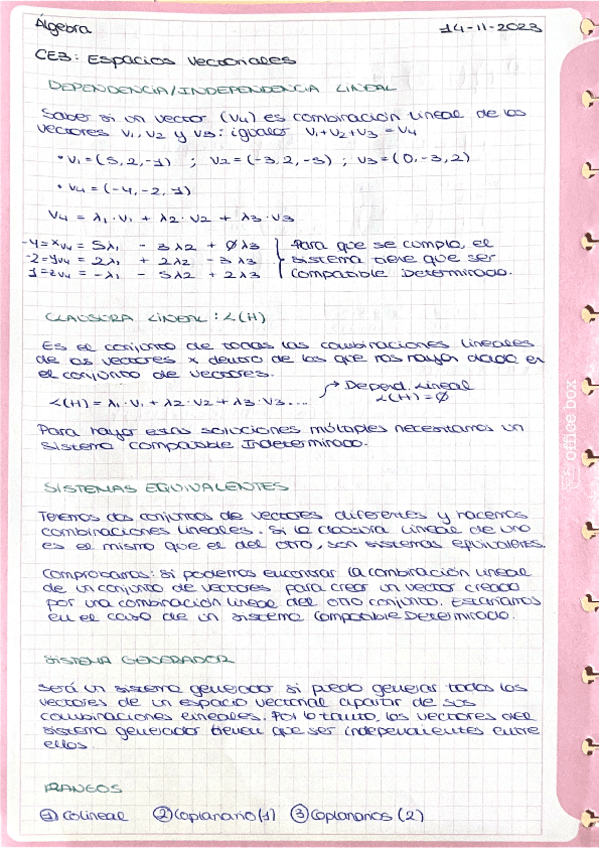 Álgebra 14-11-2023
CE3: Espacios Vectoriales
DEPENDENCIA/INDEPENDENCIA LINEAL
Saber si un vector (V4) es combinación lineal de los
vectores V1, V2 y V3: igualar V1+V2+V3 = V4
• V1 = (5, 2, -1) ; V2 = (-3, 2, -5) ; V3 = (0, -3, 2)
• V4 = (-4, -2, 1)
V4 = λ1 · V1 + λ2 · V2 + λ3 · V3
-4 = xV4 = 5λ1 - 3λ2 + 0λ3 | Para que se cumpla, el
-2 = yV4 = 2λ1 + 2λ2 - 3λ3 sistema tiene que ser
1 = zV4 = -λ1 - 5λ2 + 2λ3 Compatible Determinado.
CLAUSURA LINEAL: L(H)
Es el conjunto de todas las combinaciones lineales
de os vectores x dentro de los que nos hayan dado en
el conjunto de vectores.
→ Depend. Lineal
L(H) = λ1 · V1 + λ2 · V2 + λ3 · V3 .... L(H) = Ø
Para hayar estas soluciones múltiples necesitamos un
sistema compatible Indeterminado.
office box
SISTEMAS EQUIVALENTES
Tenemos dos conjuntos de vectores diferentes y hacemos
combinaciones lineales. Si la clausura lineal de uno
es el mismo que el del otro, son sistemas equivalentes.
Comprobamos: si podemos encontrar la combinación lineal
de un conjunto de vectores para crear un vector creado
por una combinación lineal del otro conjunto. Estaríamos
en el caso de un sistema Compatible Determinado.
SISTEMA GENERADOR
Será un sistema generador si puedo generar todos los
vectores de un espacio vectorial a partir de sus
combinaciones lineales. Por lo tanto, los vectores del
sistema generador tienen que ser independientes entre
ellos.
RANGOS
① Colineal ② Coplanario (1) ③ Coplanarios (2)